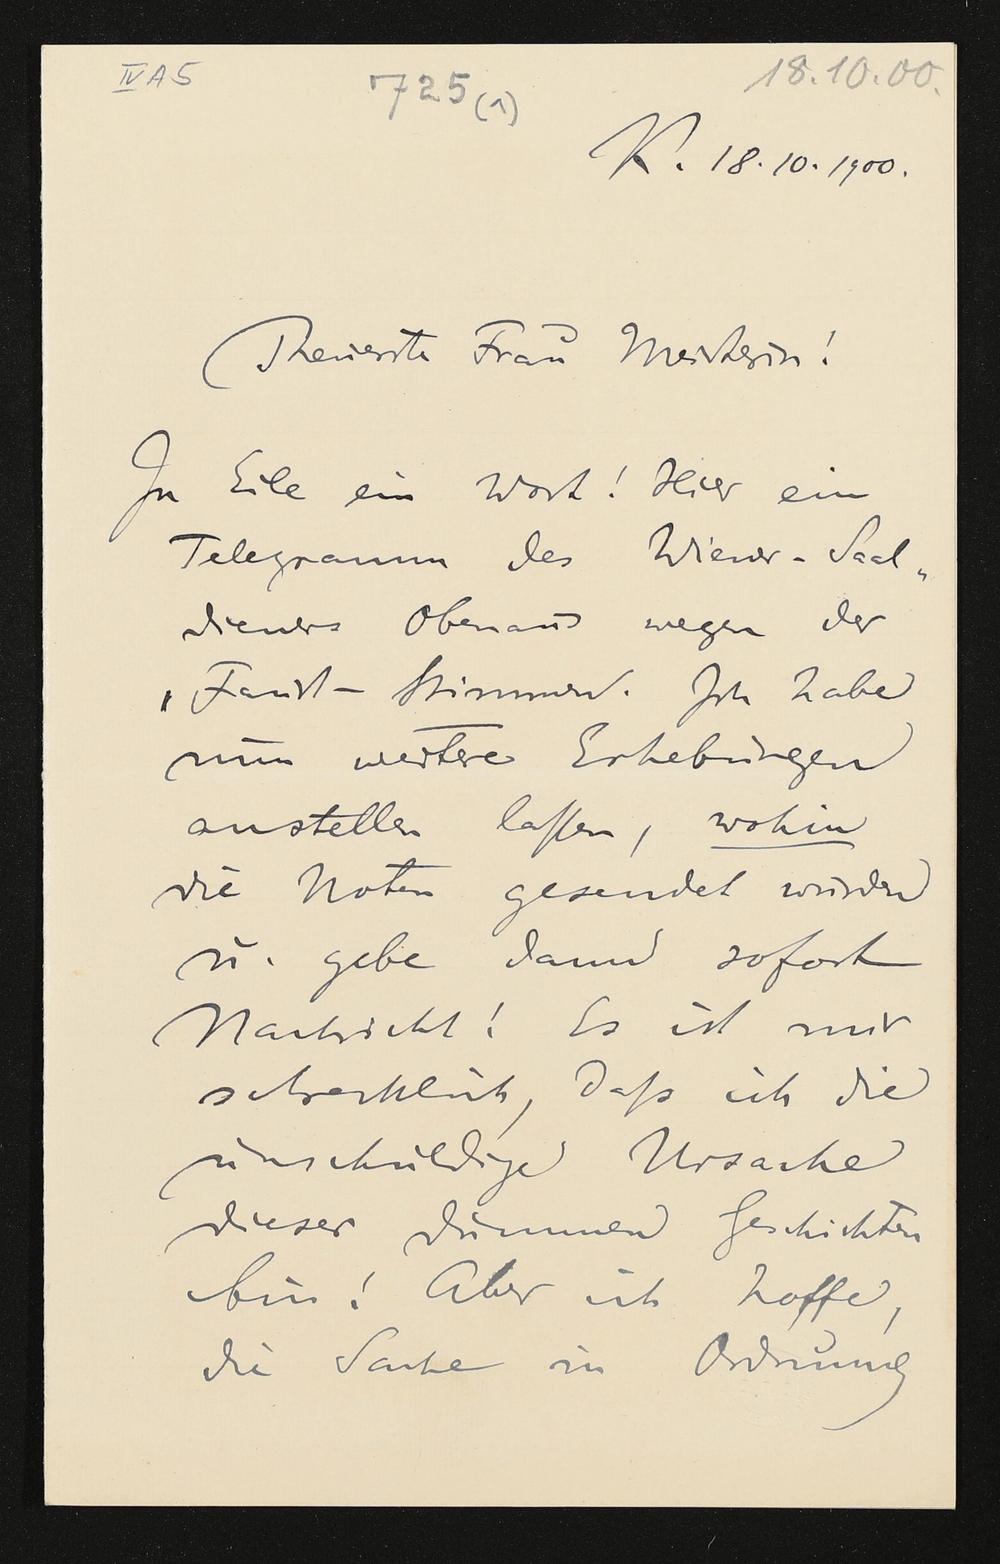 IV A 5
725 (1)
18.10.00.
K. 18.10.1900.
Theuerste Frau Meisterin!
In Eile ein Wort! Hier ein
Telegramm des Wiener-Saal„
dieners Obenaus wegen der
„Faust-Stimmen. Ich habe
nun weitere Erhebungen
anstellen lassen, wohin
die Noten gesendet wurden
u. gebe dann sofort
Nachricht! Es ist mir
schrecklich, daß ich die
unschuldige Ursache
dieser dummen Geschichten
bin! Aber ich hoffe,
die Sache in Ordnung